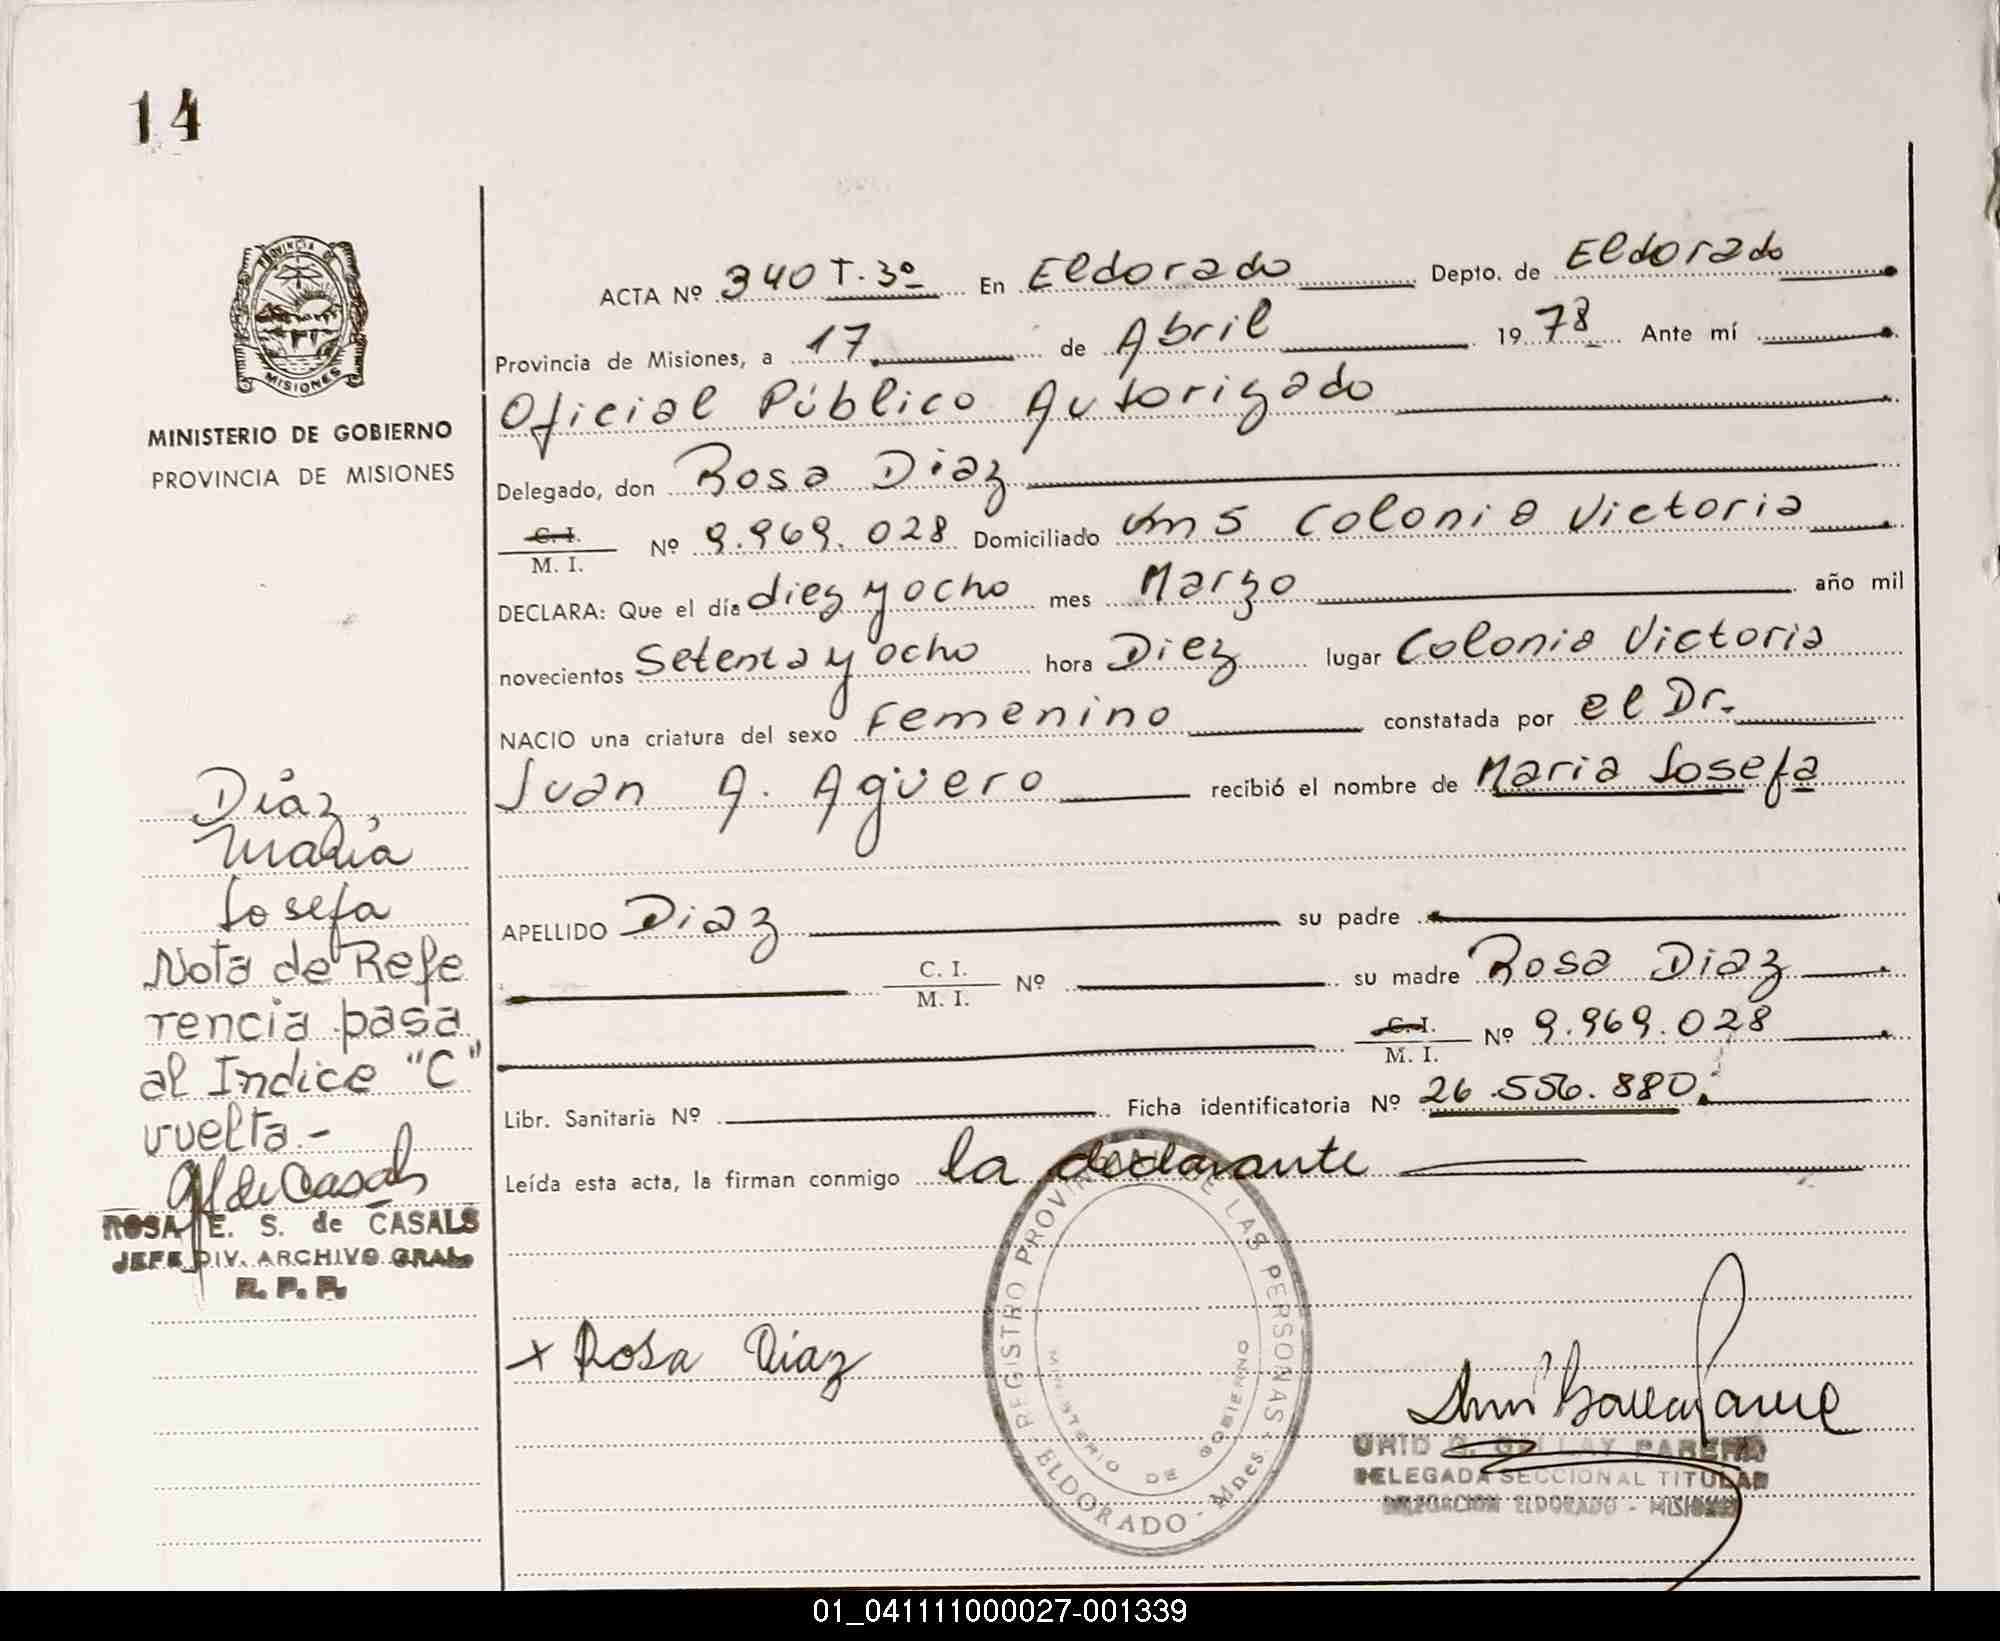 14
PROVINCIA DE
MISIONES
MINISTERIO DE GOBIERNO
PROVINCIA DE MISIONES
ACTA Nº 340 T. 3º En Eldorado Depto. de Eldorado
Provincia de Misiones, a 17 de Abril 1978 Ante mí
Oficial Público Autorizado
Delegado, don Rosa Diaz
C. I.
M. I. Nº 9.969.028 Domiciliado Km 5 Colonia Victoria
DECLARA: Que el día diez y ocho mes Marzo año mil
novecientos Setenta y ocho hora Diez lugar Colonia Victoria
NACIO una criatura del sexo Femenino constatada por el Dr.
Juan A. Agüero recibió el nombre de Maria Josefa
APELLIDO Diaz su padre
C. I.
M. I. Nº su madre Rosa Diaz
C. I.
M. I. Nº 9.969.028
Libr. Sanitaria Nº Ficha identificatoria Nº 26.556.880.
Leída esta acta, la firman conmigo la declarante
Díaz,
María
Josefa
Nota de Refe
rencia pasa
al Indice "C"
vuelta.-
ROSA E. S. de CASALS
JEFE DIV. ARCHIVO GRAL.
R. P. P.
x Rosa Díaz
REGISTRO PROVINCIAL DE LAS PERSONAS
MINISTERIO DE GOBIERNO
ELDORADO - Mnes.
DELEGADA SECCIONAL TITULAR
DELEGACION ELDORADO - MISIONES
01_041111000027-001339